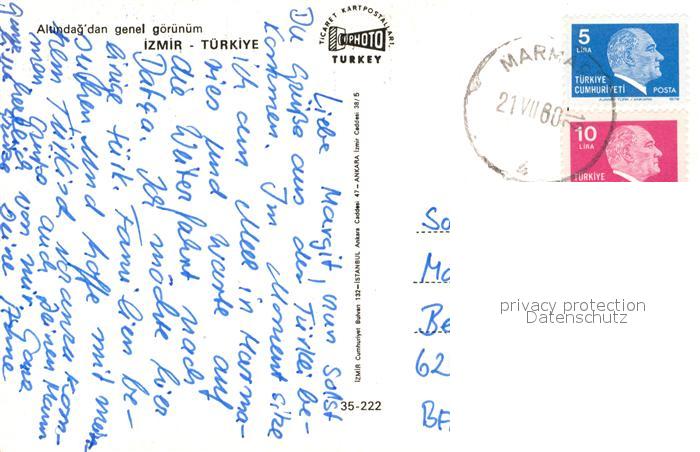 Altındağ'dan genel görünüm
İZMİR - TÜRKİYE
TİCARET KARTPOSTALLARI
KEPHOTO
TURKEY
5
LİRA
TÜRKİYE
CUMHURİYETİ
POSTA
10
LİRA
TÜRKİYE
MARMA
21 VII 80
Liebe Margit! nun sollst
Du Grüße aus der Türkei be-
kommen. Im Moment sitze
ich am Meer in Marma-
ris und warte auf
die Weiterfahrt nach
Datça. Ich möchte hier
einige türk. Familien be-
suchen und hoffe mit mei-
nem Türkisch voranzukom-
men. Grüße auch Deinen Mann
herzlich von mir. Ganz
liebe Grüße Deine
İZMİR Cumhuriyet Bulvarı 132—İSTANBUL Ankara Caddesi 47 — ANKARA İzmir Caddesi 38/5
35-222
So
Ma
Be
62
BA
privacy protection
Datenschutz